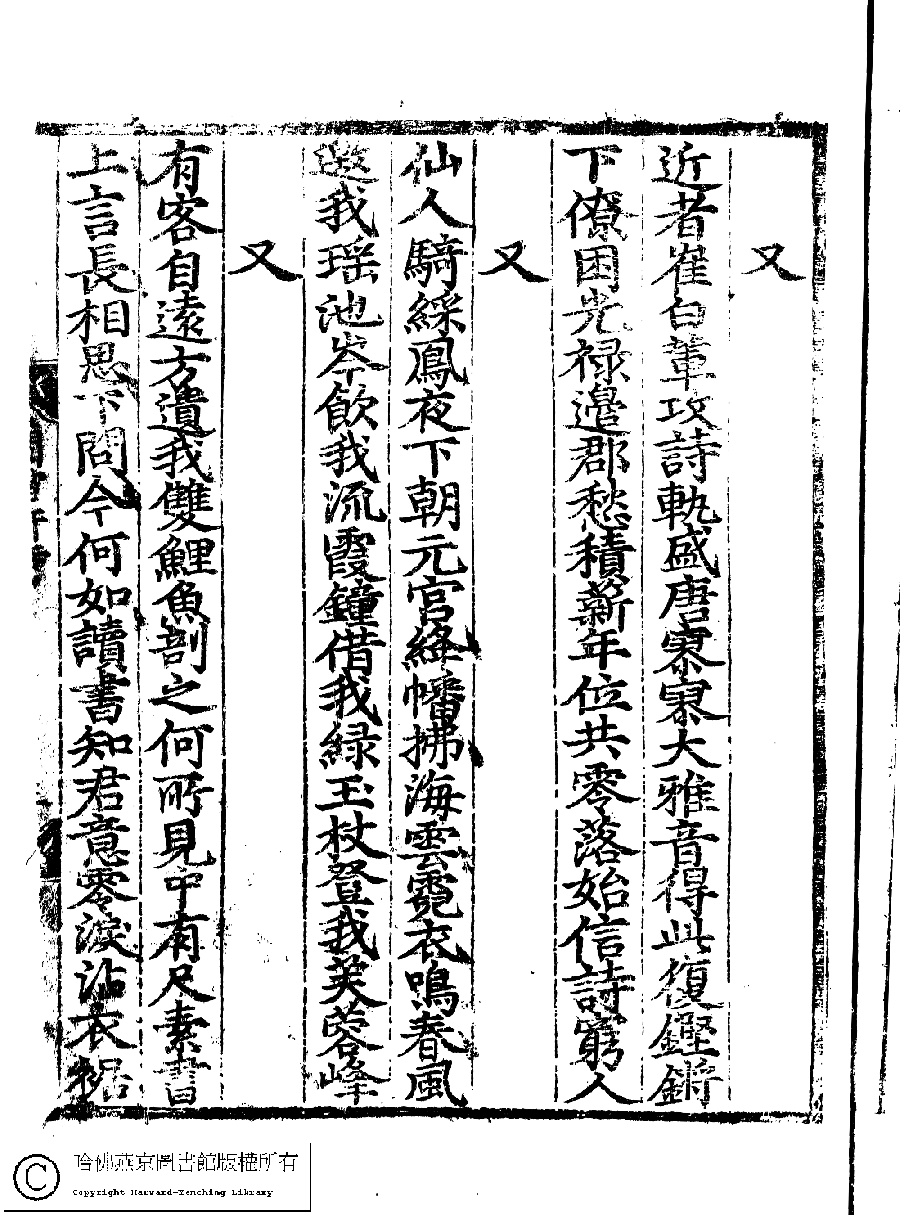 又
近者崔白輩攻詩軌盛唐寥寥大雅音得此復鏗鏘
下僚困光祿邊郡愁積薪年位共零落始信詩窮人
又
仙人騎綵鳳夜下朝元宮絳幡拂海雲霓衣鳴春風
邀我瑤池岑飮我流霞鐘借我綠玉杖登我芙蓉峰
又
有客自遠方遺我雙鯉魚剖之何所見中有尺素書
上言長相思下問今何如讀書知君意零淚沾衣裾
哈佛燕京圖書館版權所有
Copyright Harvard-Yenching Library